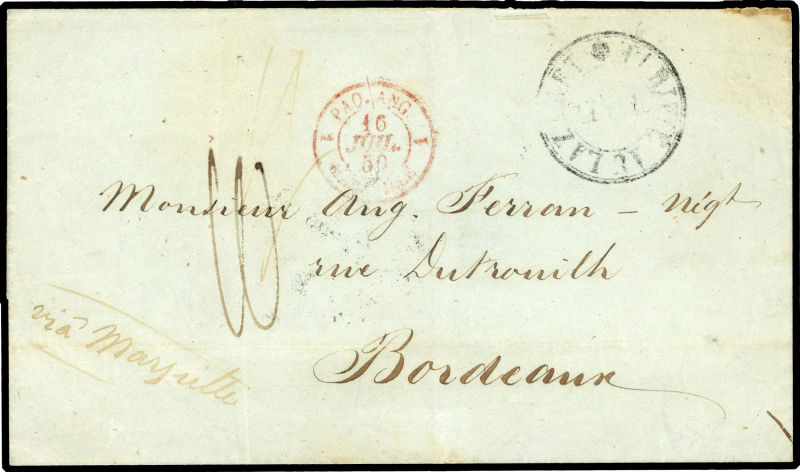 PAQ. ANG.
16
JUIL.
50
Monsieur Aug. Ferran – Négt
rue Dutrouilh
Bordeaux
via Marseille